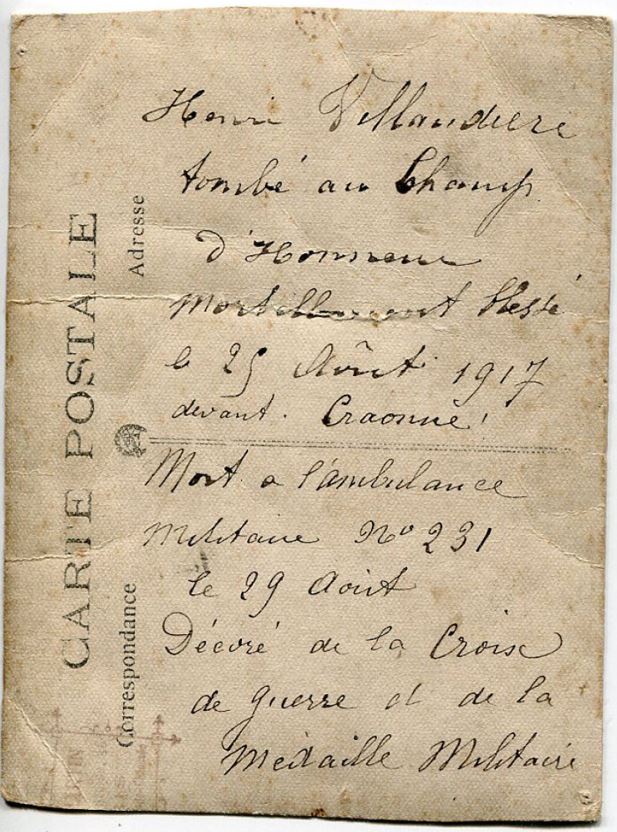 Henri Villaudiere
tombé au Champ
d'Honneur
Mortellement blessé
le 25 Août 1917
devant. Craonne!
Mort a l'ambulance
Militaire No 231
le 29 Aout
Décoré de la Croix
de guerre et de la
Medaille Militaire
CARTE POSTALE
Correspondance
Adresse